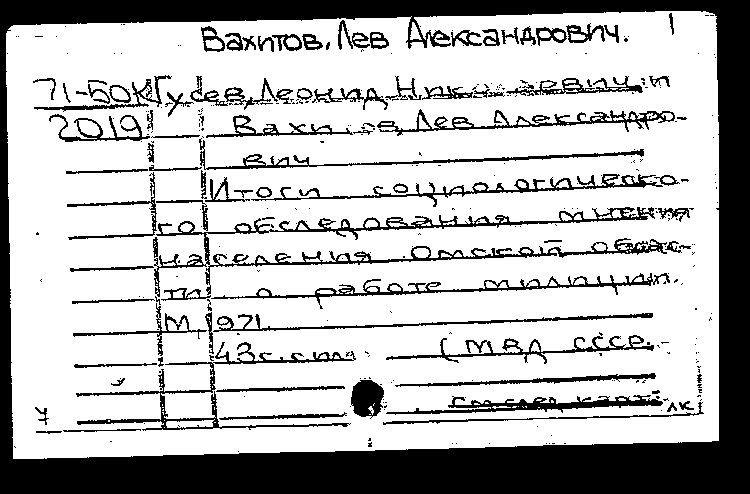 1
Вахитов, Лев Александрович.
71-50К Гусев, Леонид Николаевич и
2019 Вахитов, Лев Александро-
вич
Итоги социологическо-
го обследования мнения
населения Омской облас-
ти о работе милиции.
М, 1971.
43 с. с илл. (МВД СССР.
см след карт
ЛК